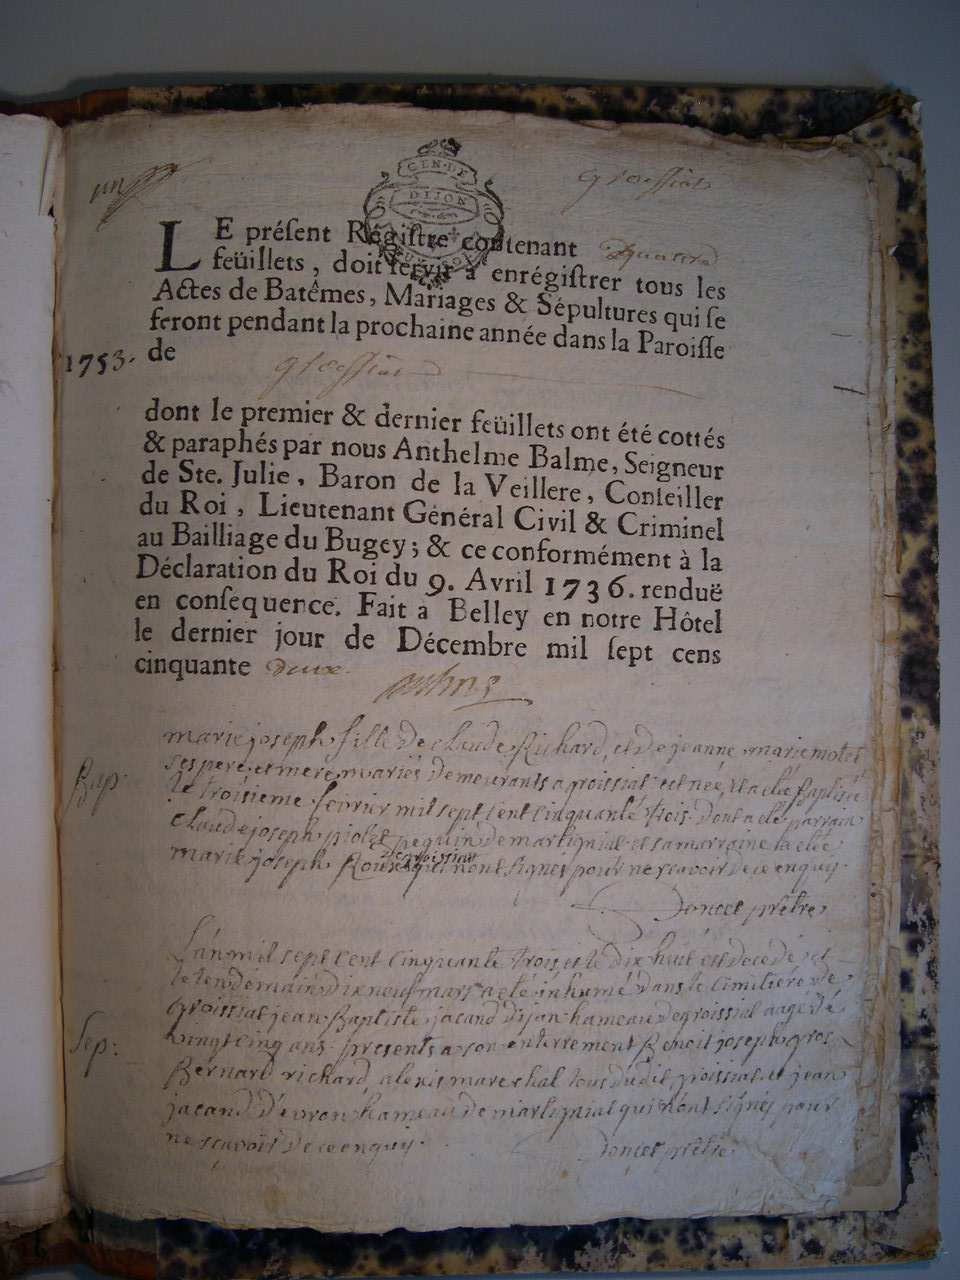 un
groissiat
GEN. DE
DIJON
LE présent Régistre contenant quatre
feüillets, doit servir à enrégistrer tous les
Actes de Batêmes, Mariages & Sépultures qui se
feront pendant la prochaine année dans la Paroisse
1753. de groissiat
dont le premier & dernier feüillets ont été cottés
& paraphés par nous Anthelme Balme, Seigneur
de Ste. Julie, Baron de la Veillere, Conseiller
du Roi, Lieutenant Général Civil & Criminel
au Bailliage du Bugey; & ce conformément à la
Déclaration du Roi du 9. Avril 1736. renduë
en consequence. Fait à Belley en notre Hôtel
le dernier jour de Décembre mil sept cens
cinquante deux.
marie joseph fille de claude Richard, et de jeanne marie motet
ses pere et mere mariés demeurants a groissiat est née, et a eté Baptisée
Bap: le troisieme fevrier mil sept cent cinquante trois. dont a eté parrain
claude joseph piolet pequin de martigniat et sa marraine la eté
de groissiat
marie joseph Roux qui n'ont signés pour ne scavoir de ce enquis.
Doncet prêtre
L'an mil sept cent cinquante trois, et le dix huit est decedé, et
le lendemain dix neuf mars a eté inhumé dans le cimitiére de
groissiat jean Baptiste jacand d'ijon hameau de groissiat aagé de
Sep: vingt cinq ans. presents a son enterrement Benoit joseph gros
Bernard richard, alexis marechal tous dudit groissiat, et jean
jacand d'evron hameau de martigniat qui n'ont signés pour
ne scavoir de ce enquis.
Doncet prêtre